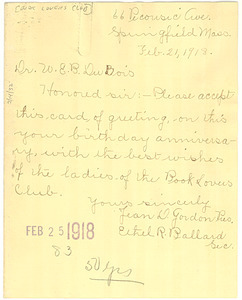 Book Lovers Club
66 Pecousic Ave.
Springfield Mass
Feb. 21, 1918.
Dr. W. E. B. DuBois
Honored sir:- Please accept
this card of greeting, on this
your birthday anniversa-
ry, with the best wishes
of the ladies, of the Book Lovers
Club.
Yours sincerely
Jean D Gordon Pres.
Ethel R. Ballard
Sec.
FEB 25 1918
83
50 yrs